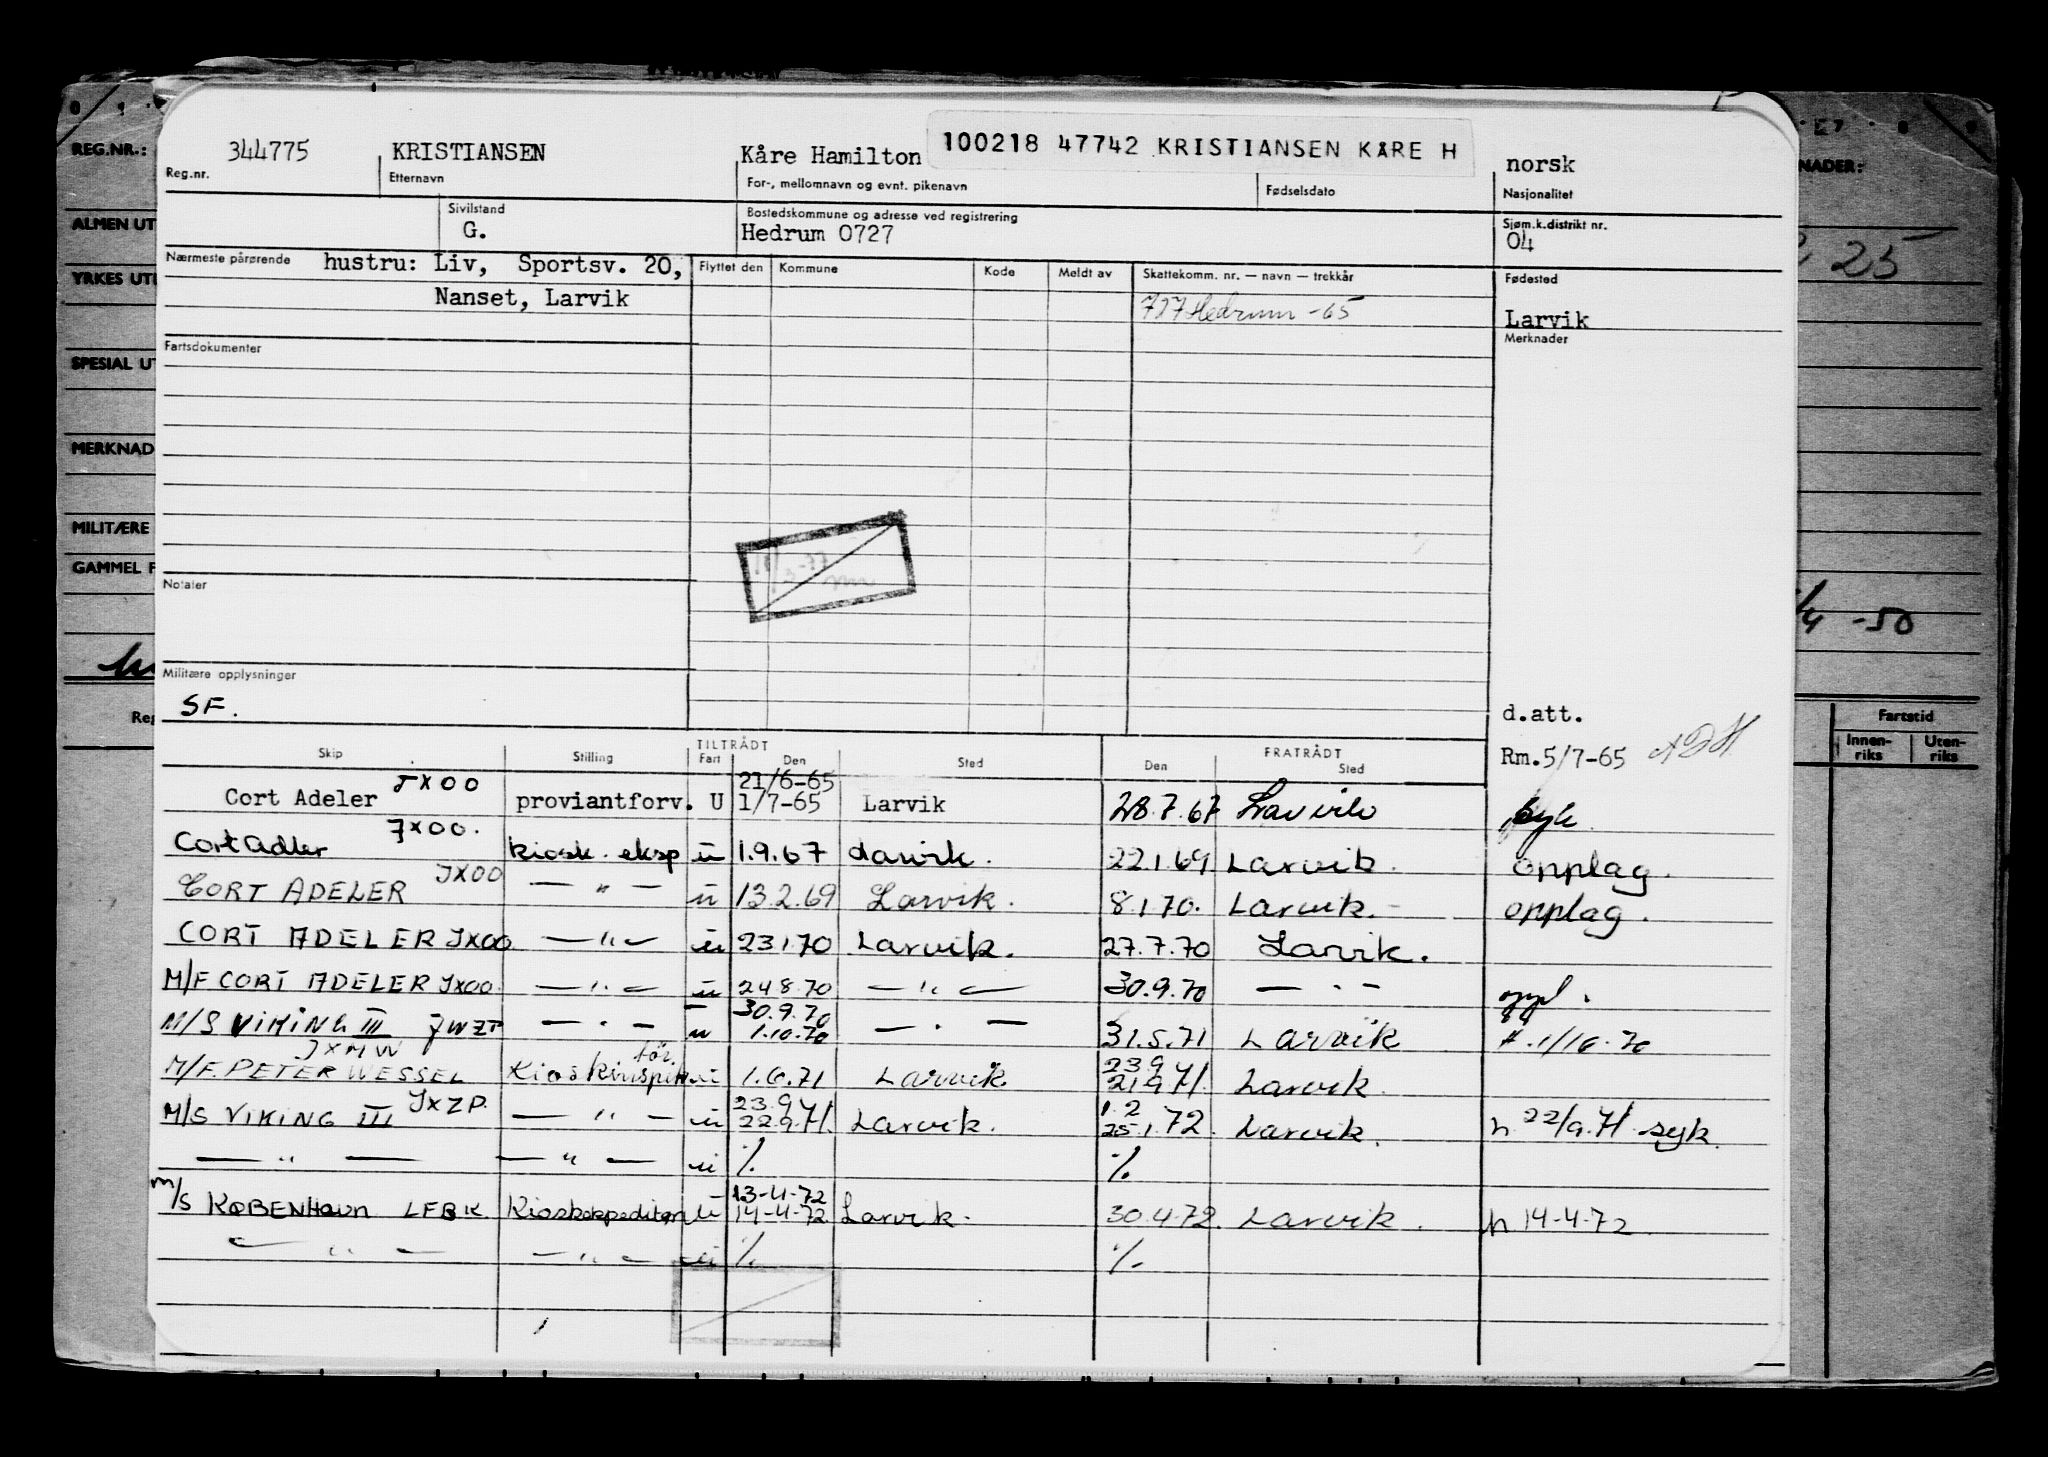 REG.NR.:
ALMEN UT
YRKES UT
SPESIAL UT
MERKNAD
MILITÆRE
GAMMEL F
Reg
NADER:
25
-50
Fartstid
Innen-riks Uten-riks
344775 KRISTIANSEN Kåre Hamilton 100218 47742 KRISTIANSEN KÅRE H norsk
Reg.nr. Etternavn For-, mellomnavn og evnt. pikenavn Fødselsdato Nasjonalitet
Sivilstand Bostedskommune og adresse ved registrering Sjøm.k.distrikt nr.
G. Hedrum 0727 04
Nærmeste pårørende hustru: Liv, Sportsv. 20, Flyttet den Kommune Kode Meldt av Skattekomm. nr. — navn — trekkår Fødested
Nanset, Larvik 727 Hedrum -65 Larvik
Fartsdokumenter Merknader
Notater
Militære opplysninger
SF. d.att.
Rm.5/7-65
TILTRÅDT FRATRÅDT
Skip Stilling Fart Den Sted Den Sted
21/6-65
Cort Adeler JXOO proviantforv. U 1/7-65 Larvik 28.7.67 Larvik syk.
Cort Adler JXOO. kiosk. eksp u 1.9.67 Larvik. 22.1.69 Larvik. opplag.
CORT ADELER JXOO — " — u 13.2.69 Larvik. 8.1.70. Larvik. opplag.
CORT ADELER JXOO — " — u 23.1.70 Larvik. 27.7.70 Larvik.
M/F CORT ADELER JXOO — " — u 24.8.70 — " — 30.9.70 — " — oppl.
30.9.70
M/S VIKING III JWZP — " — u 1.10.70 — " — 31.5.71 Larvik f. 1/10.70
JXMW 23.9
M/F. PETER WESSEL Kioskinspektør. u 1.6.71 Larvik 21.9.71. Larvik.
23.9 1.2
M/S VIKING III JXZP. — " — u 22.9.71. Larvik. 25.1.72. Larvik. h 22/9.71. syk.
— " — — " — u % %
13-4-72
M/S KØBENHAVN LFBK Kioskekspeditør u 14-4-72 Larvik. 30.4.72. Larvik. h 14-4-72
— " — — " — u % %